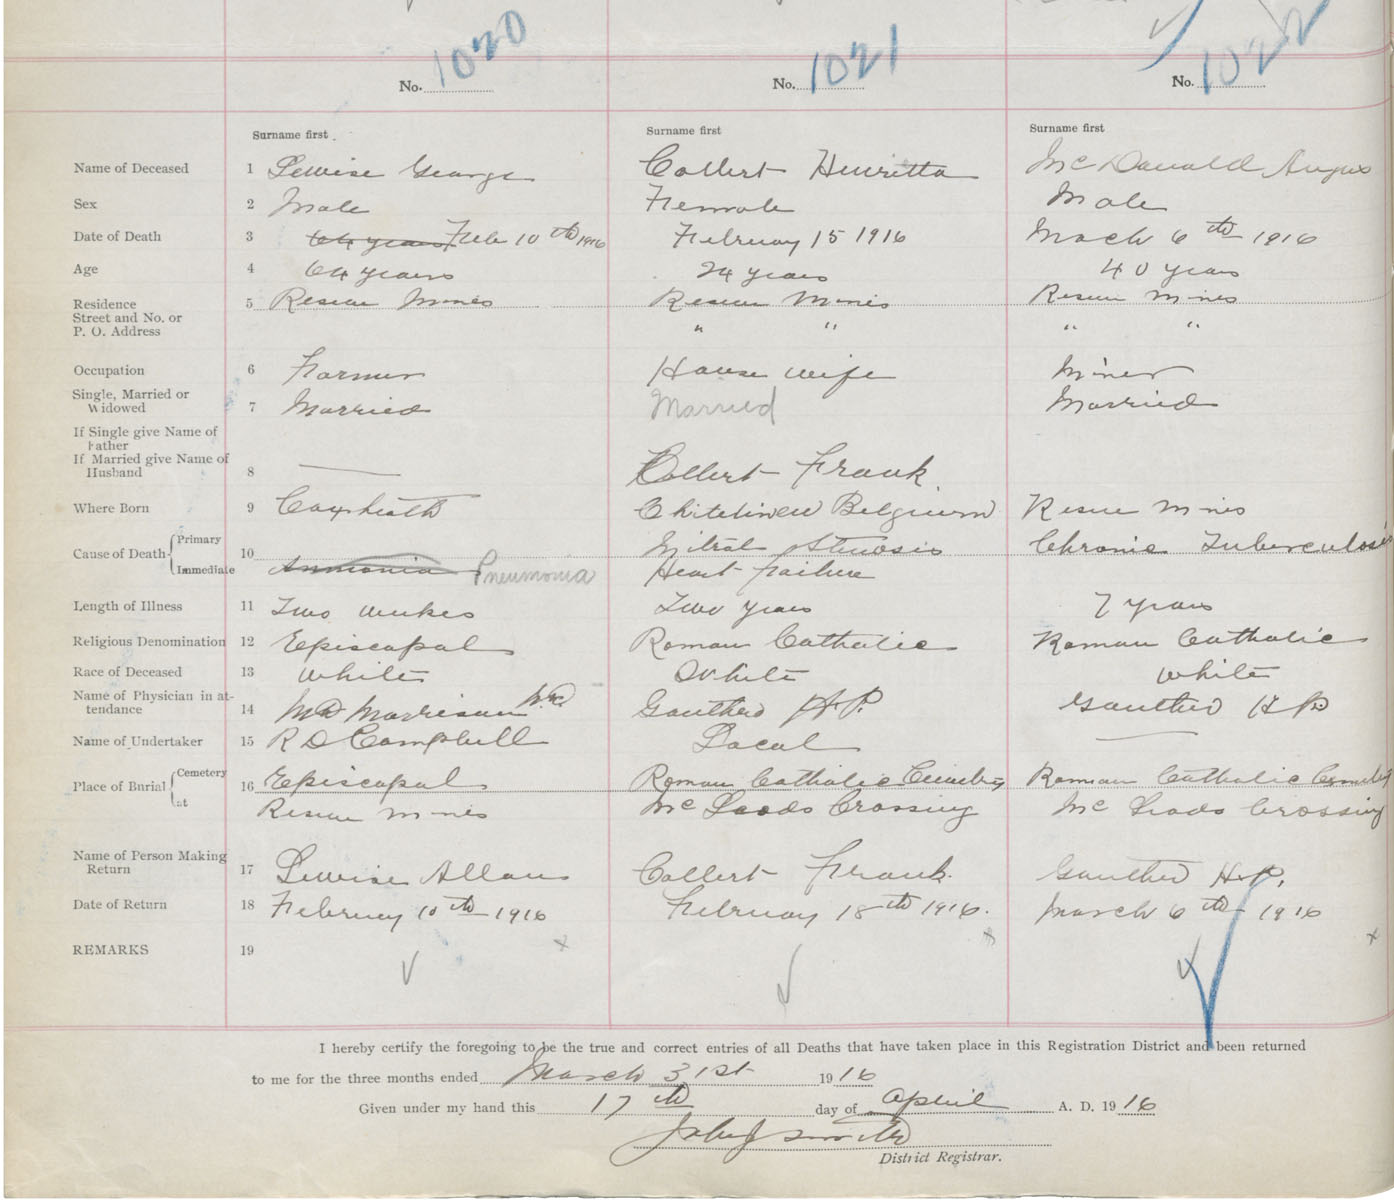 No. 1020 No. 1021 No. 1022
Surname first Surname first Surname first
Name of Deceased 1 Lewise George Collert Henrietta McDonald Angus
Sex 2 Male Female Male
Date of Death 3 64 years Feb 10th 1916 February 15 1916 March 6th 1916
Age 4 64 years 24 years 40 years
Residence 5 Reserve Mines Reserve Mines Reserve Mines
Street and No. or
P. O. Address " " " "
Occupation 6 Farmer House wife Miner
Single, Married or
Widowed 7 Married Married Married
If Single give Name of
Father
If Married give Name of
Husband 8 — Collert Frank
Where Born 9 Coxheath Belgium Reserve Mines
Cause of Death Primary 10 Mitral Stenosis Chronic Tuberculosis
Immediate Ammonia Pneumonia Heart Failure
Length of Illness 11 Two weekes Two years 7 years
Religious Denomination 12 Episcopal Roman Catholic Roman Catholic
Race of Deceased 13 White White White
Name of Physician in at-
tendance 14 Morrison Gouthro H.P. Gouthro H P.
Name of Undertaker 15 R D Campbell Local —
Place of Burial Cemetery 16 Episcopal Roman Catholic Cemetery Roman Catholic Cemetery
at Reserve Mines McLeods Crossing McLeods Crossing
Name of Person Making
Return 17 Lewise Allan Collert Frank. Gouthro H.P.
Date of Return 18 February 10th 1916 February 18th 1916. March 6th 1916
REMARKS 19
I hereby certify the foregoing to be the true and correct entries of all Deaths that have taken place in this Registration District and been returned
to me for the three months ended March 31st 1916
Given under my hand this 17th day of April A. D. 1916
District Registrar.